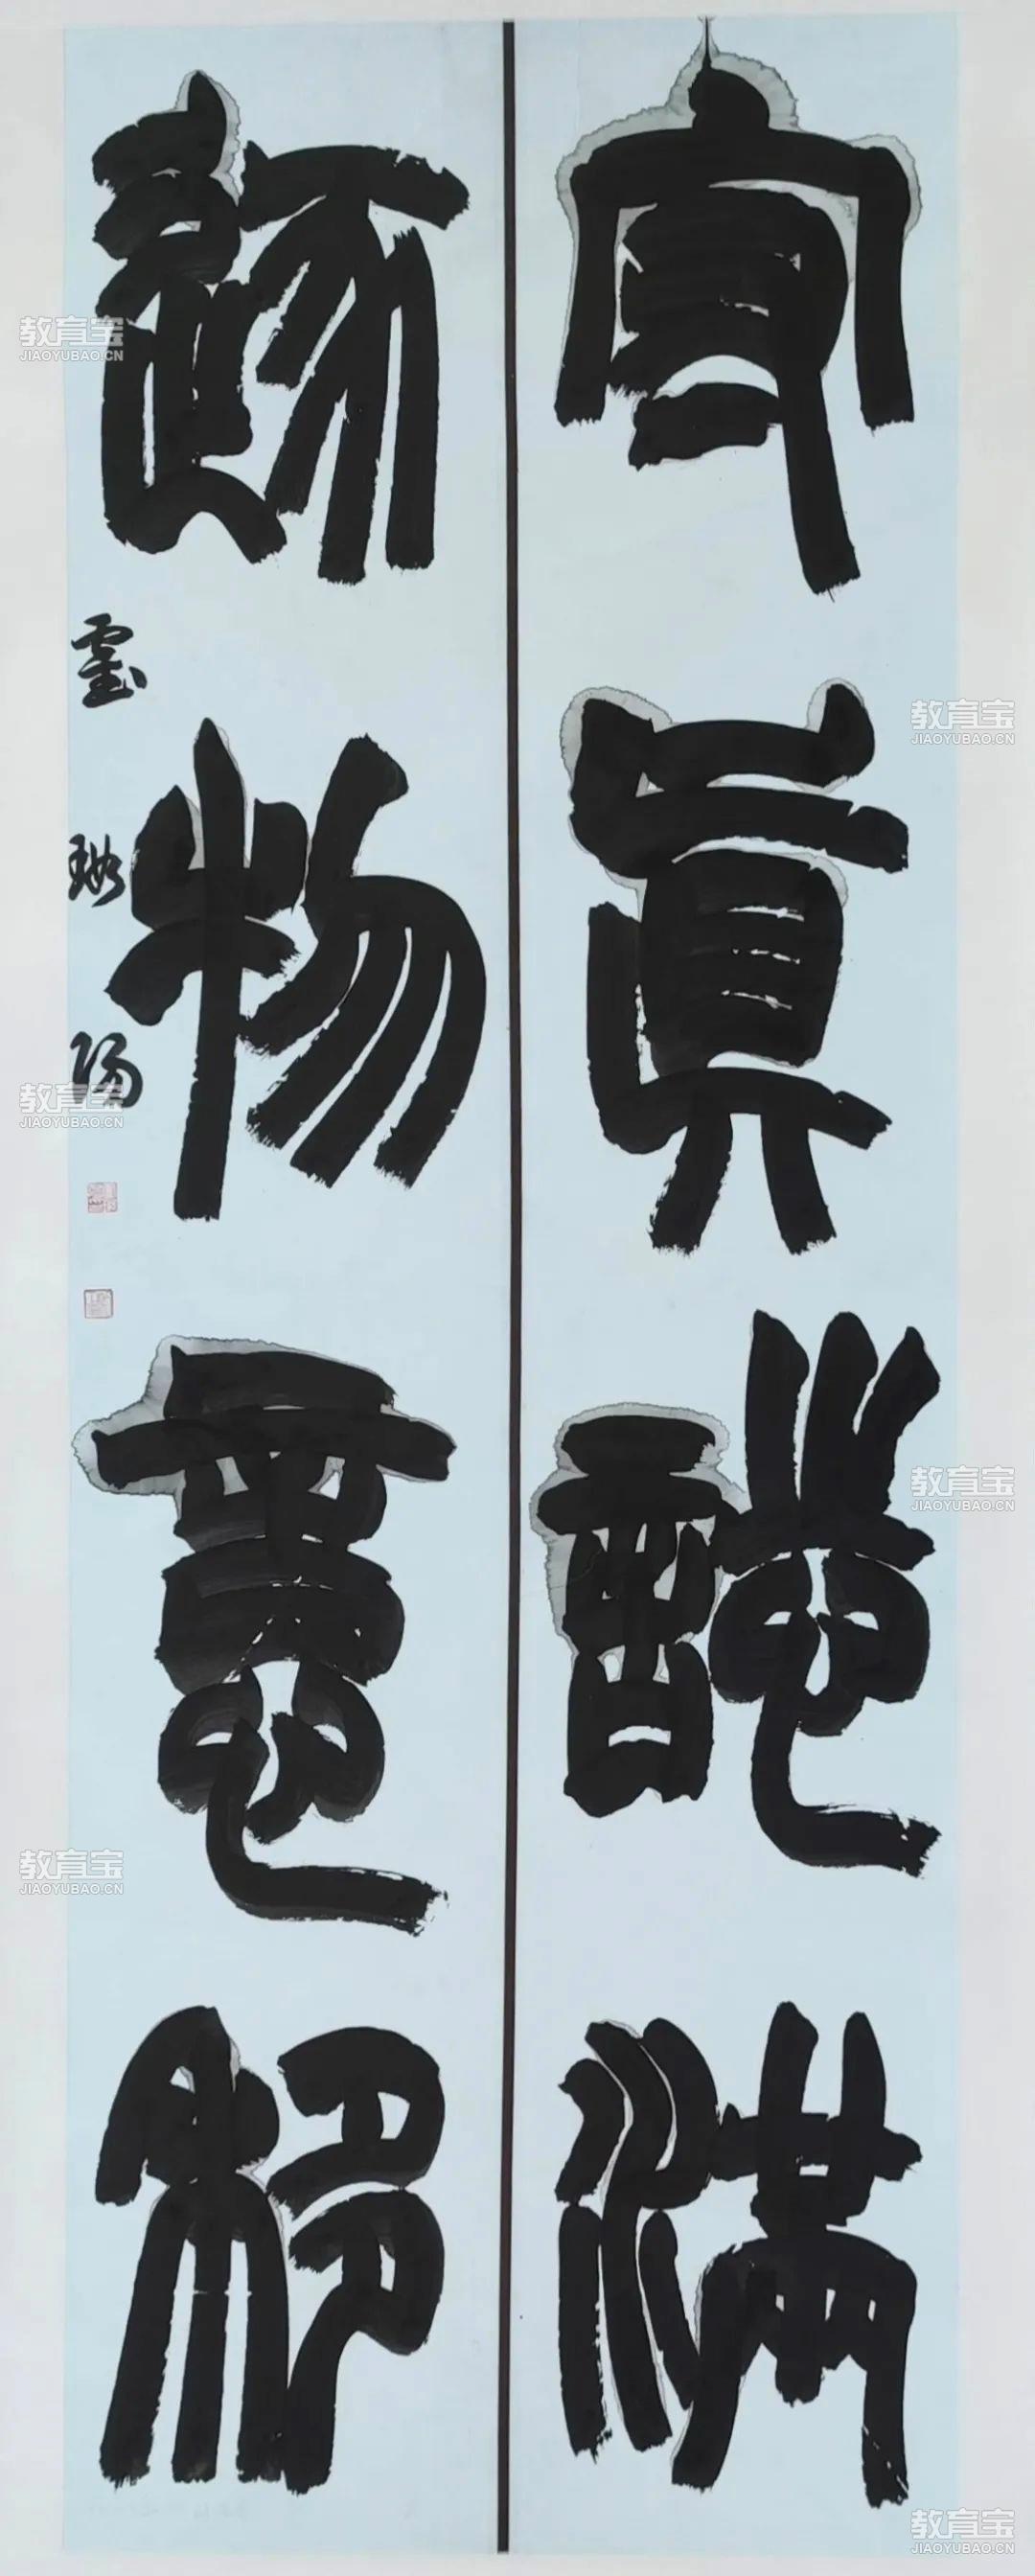 守眞誌滿
逐物意移
教育宝
JIAOYUBAO.CN
教育宝
JIAOYUBAO.CN
教育宝
JIAOYUBAO.CN
教育宝
JIAOYUBAO.CN
教育宝
JIAOYUBAO.CN
教育宝
JIAOYUBAO.CN